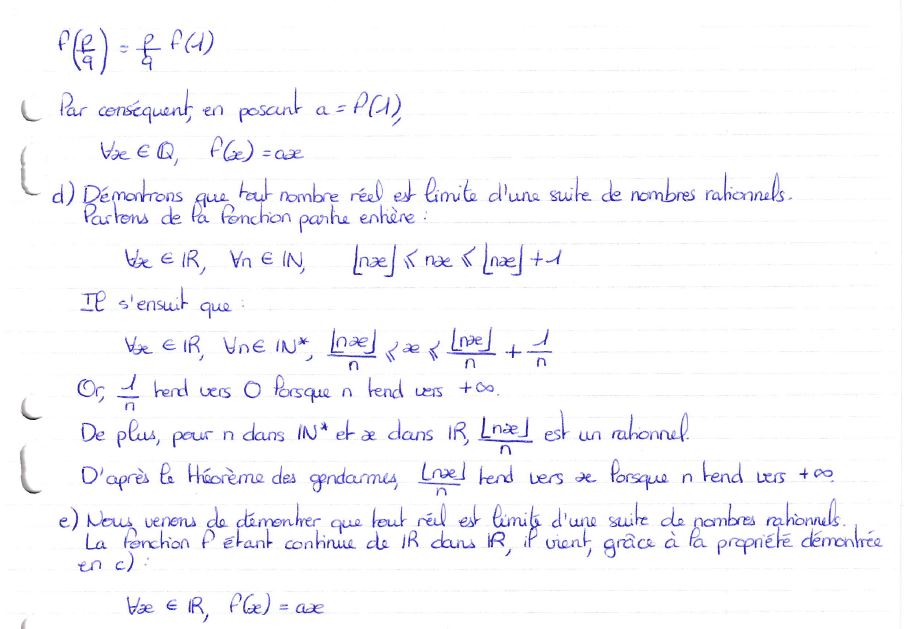 f(p/q) = p/q f(1)
Par conséquent, en posant a = f(1),
∀x ∈ ℚ, f(x) = ax
d) Démontrons que tout nombre réel est limite d'une suite de nombres rationnels.
Partons de la fonction partie entière :
∀x ∈ ℝ, ∀n ∈ ℕ, ⌊nx⌋ ⩽ nx ⩽ ⌊nx⌋ + 1
Il s'ensuit que :
∀x ∈ ℝ, ∀n ∈ ℕ*, ⌊nx⌋/n ⩽ x ⩽ ⌊nx⌋/n + 1/n
Or, 1/n tend vers 0 lorsque n tend vers +∞.
De plus, pour n dans ℕ* et x dans ℝ, ⌊nx⌋/n est un rationnel.
D'après le théorème des gendarmes, ⌊nx⌋/n tend vers x lorsque n tend vers +∞.
e) Nous venons de démontrer que tout réel est limite d'une suite de nombres rationnels.
La fonction f étant continue de ℝ dans ℝ, il vient, grâce à la propriété démontrée
en c) :
∀x ∈ ℝ, f(x) = ax